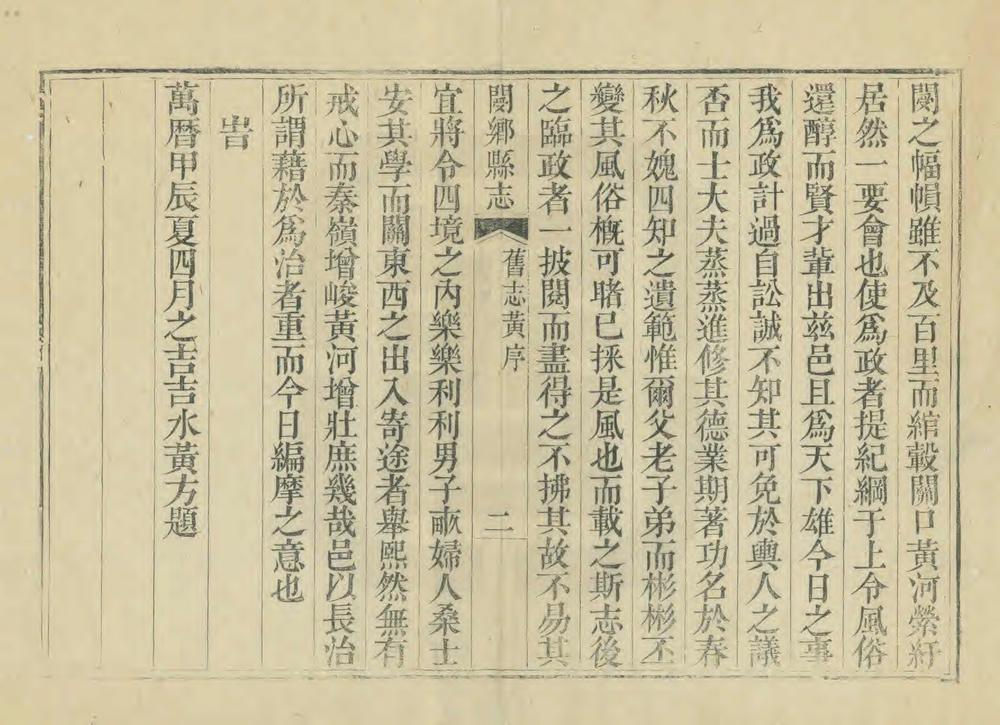 閿之幅幀雖不及百里而綰轂關口黃河縈紆
居然一要會也使爲政者提紀綱于上令風俗
還醇而賢才輩出兹邑且爲天下雄今日之事
我爲政計過自訟誠不知其可免於輿人之議
否而士大夫蒸蒸進修其德業期著功名於春
秋不媿四知之遺範惟爾父老子弟而彬彬丕
變其風俗槪可睹已採是風也而載之斯志後
之臨政者一披閱而盡得之不拂其故不易其
閿鄉縣志
舊志黃序
二
宜將令四境之內樂樂利利男子畞婦人桑士
安其學而關東西之出入寄途者舉熙然無有
戒心而秦嶺增峻黃河增壯庶幾哉邑以長治
所謂藉於爲治者重而今日編摩之意也
旹
萬曆甲辰夏四月之吉吉水黃方題